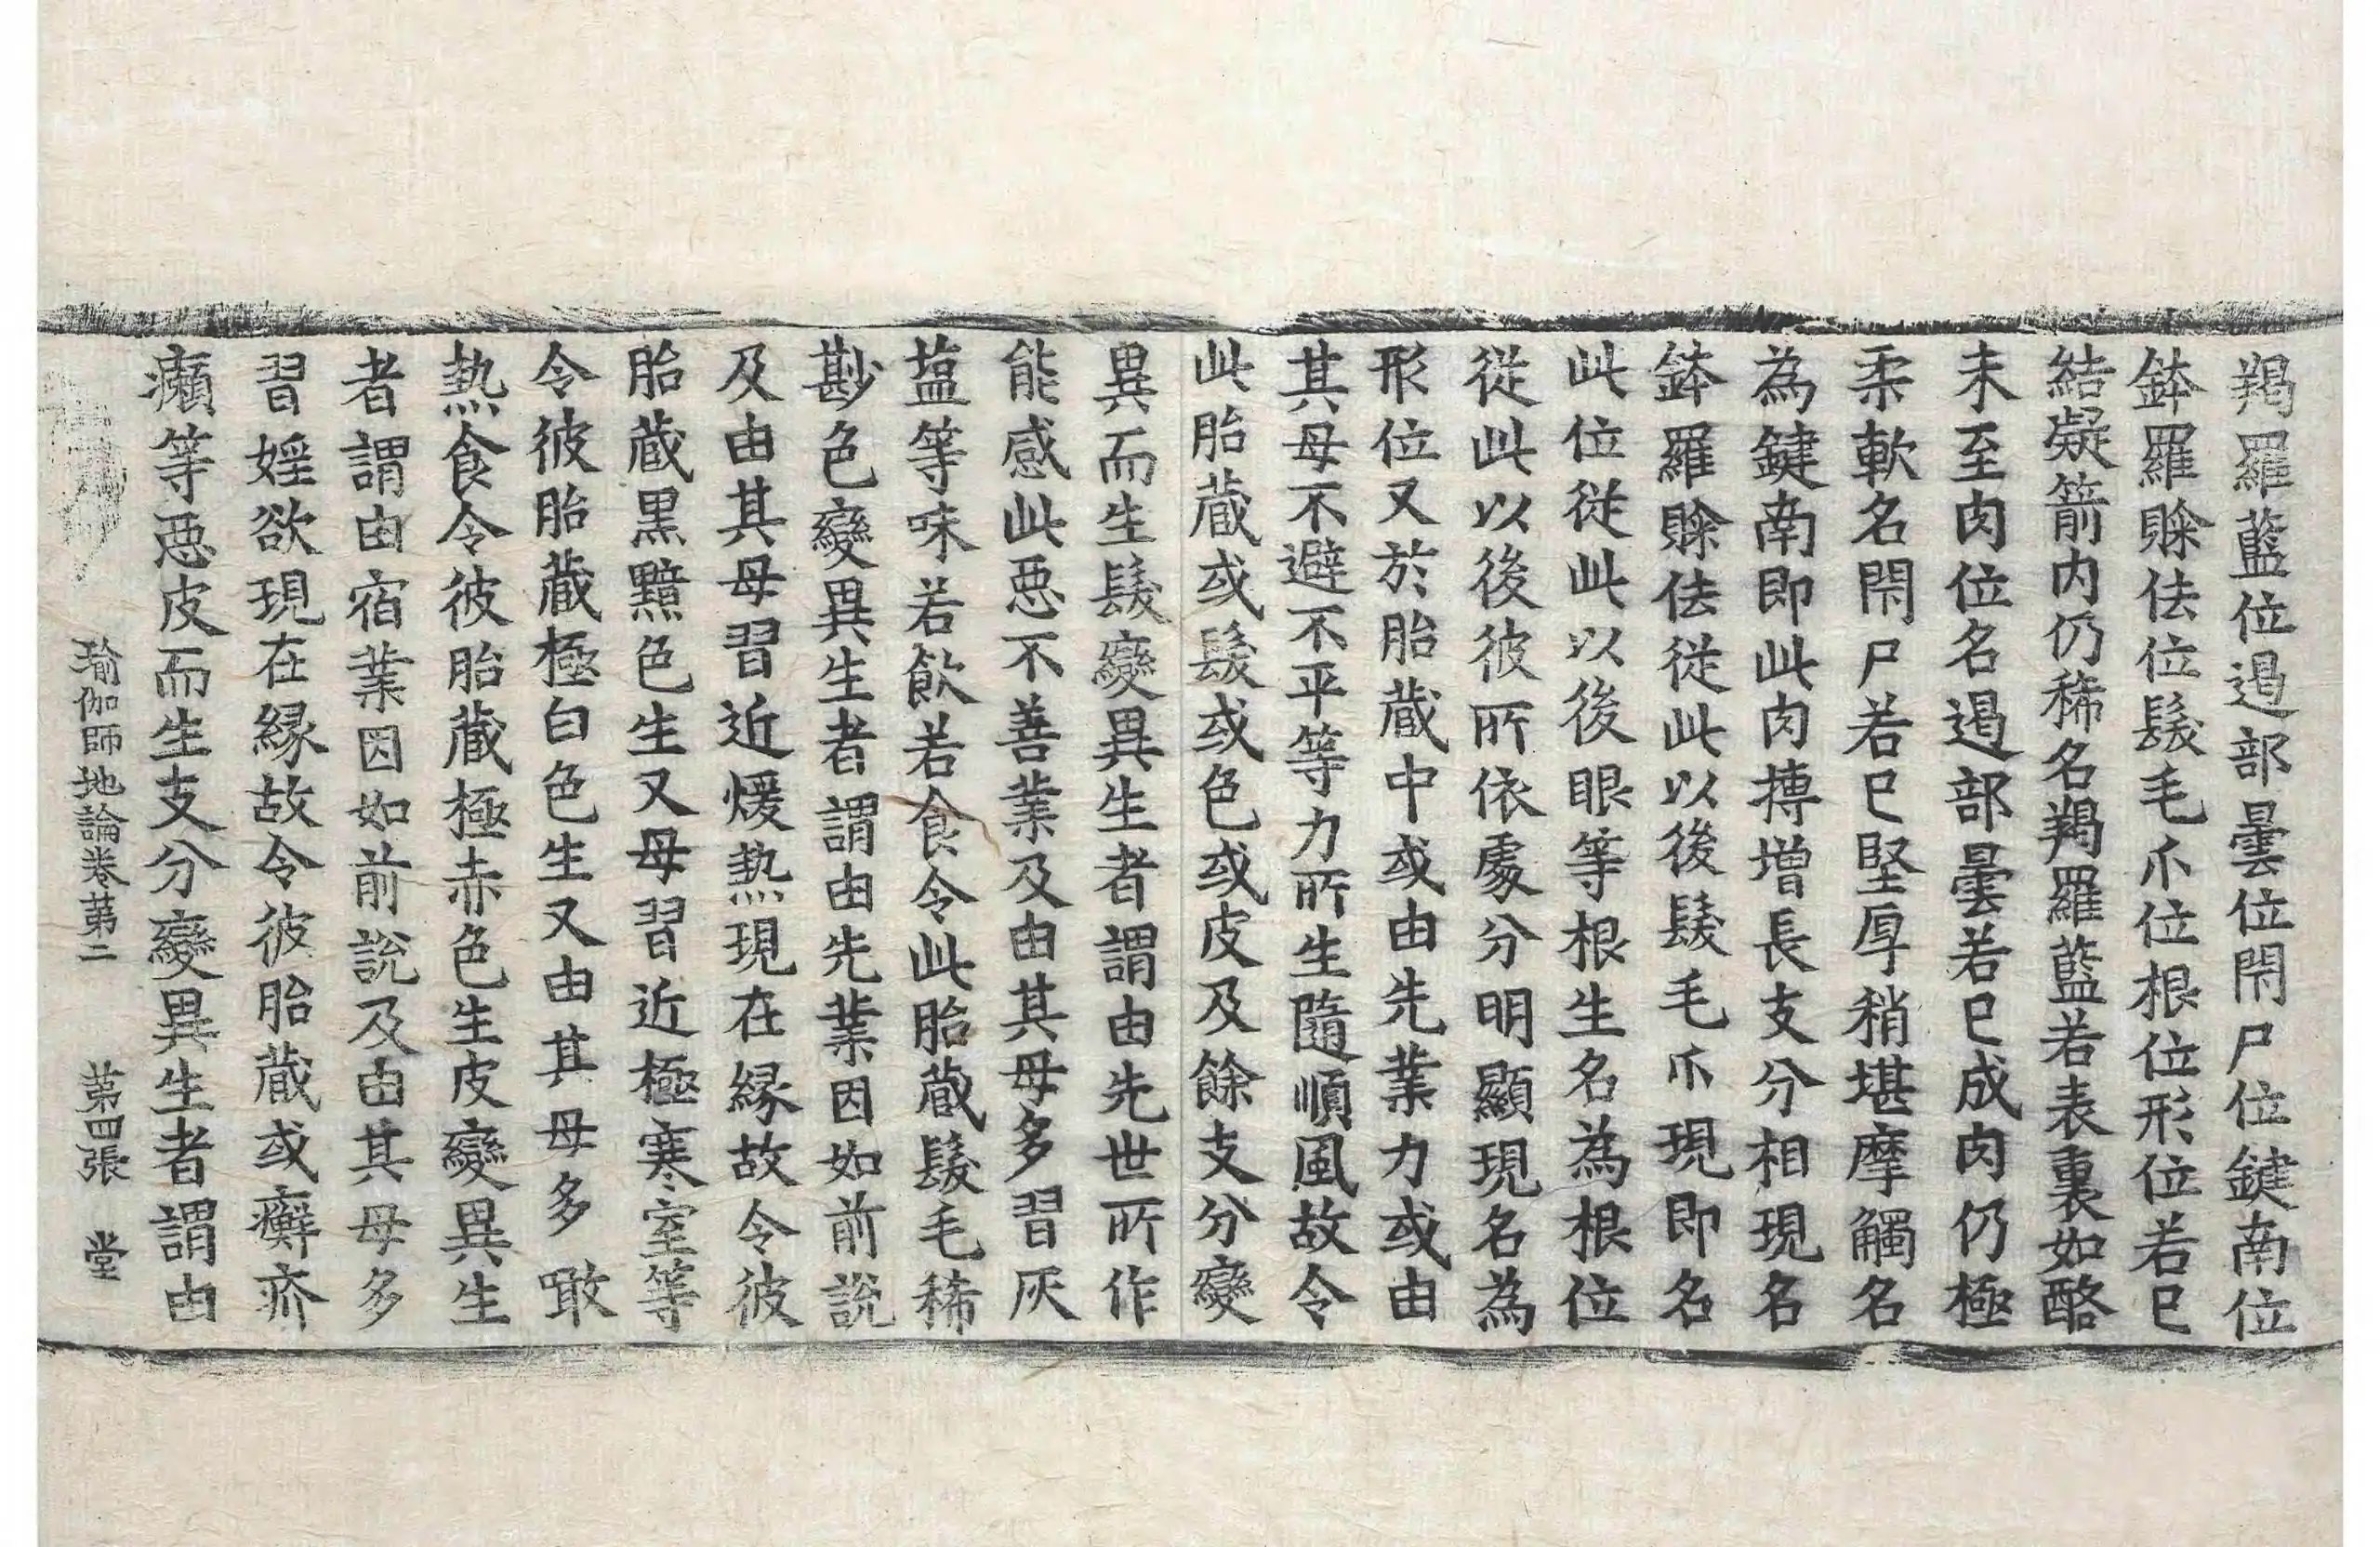 羯羅藍位遏部曇位閇尸位鍵南位
鉢羅賒佉位髮毛爪位根位形位若已
結凝箭内仍稀名羯羅藍若表裏如酪
未至肉位名遏部曇若已成肉仍極
柔軟名閇尸若已堅厚稍堪摩觸名
為鍵南即此肉摶增長支分相現名
鉢羅賒佉從此以後髮毛爪現即名
此位從此以後眼等根生名為根位
從此以後彼所依處分明顯現名為
形位又於胎藏中或由先業力或由
其母不避不平等力所生隨順風故令
此胎藏或髮或色或皮及餘支分變
異而生髮變異生者謂由先世所作
能感此惡不善業及由其母多習灰
塩等味若飲若食令此胎藏髮毛稀
尠色變異生者謂由先業因如前說
及由其母習近煖熱現在緣故令彼
胎藏黒黯色生又母習近極寒室等
令彼胎藏極白色生又由其母多噉
熱食令彼胎藏極赤色生皮變異生
者謂由宿業因如前說及由其母多
習婬欲現在緣故令彼胎藏或癬疥
癩等惡皮而生支分變異生者謂由
瑜伽師地論卷第二 第四張 堂